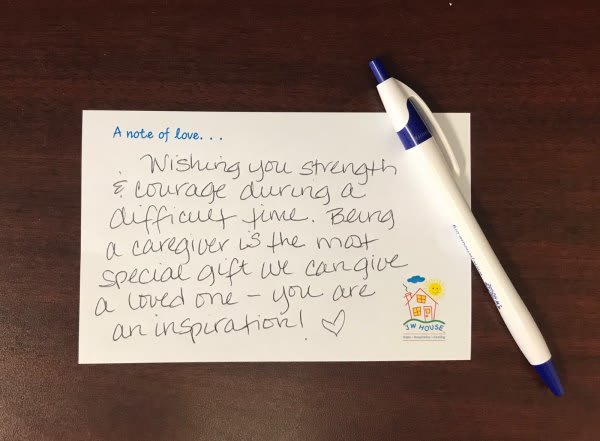 A note of love...
Wishing you strength
& courage during a
difficult time. Being
a caregiver is the most
special gift we can give
a loved one – you are
an inspiration! ♡
JW HOUSE